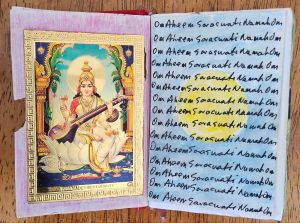 Om Aheem Saraswati Namah Om
Om Aheem Saraswati Namah Om
Om Aheem Saraswati Namah Om
Om Aheem Saraswati Namah Om
Om Aheem Saraswati Namah Om
Om Aheem Saraswati Namah Om
Om Aheem Saraswati Namah Om
Om Aheem Saraswati Namah Om
Om Aheem Saraswati Namah Om
Om Aheem Saraswati Namah Om
Om Aheem Saraswati Namah Om
Om Aheem Saraswati Namah Om
Om Aheem Saraswati Namah Om